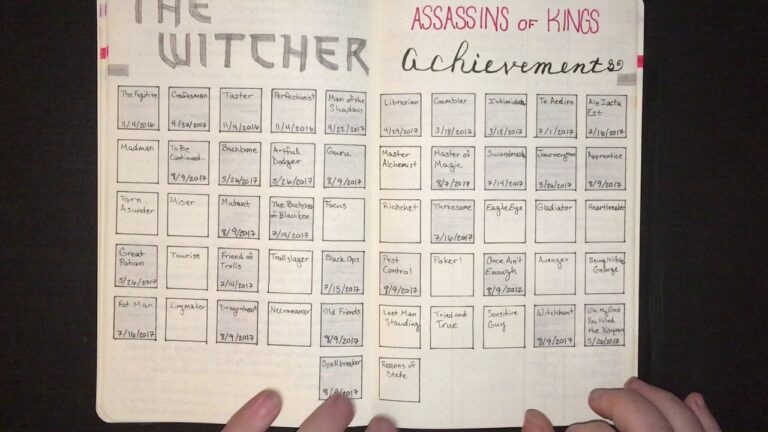 THE
WITCHER
The Fugitive
11/4/2016
Craftsman
4/30/2017
Taster
11/4/2016
Perfectionist
11/4/2016
Man of the
Shadows
4/22/2017
Madman
To Be
Continued...
8/9/2017
Backbone
5/26/2017
Artful
Dodger
5/26/2017
Guru
8/9/2017
Torn
Asunder
Miser
Mutant
8/9/2017
The Butcher
of Blaviken
7/14/2017
Focus
Great
Potion
5/26/2017
Tourist
Friend of
Trolls
7/14/2017
Trollslayer
Black Ops
7/15/2017
Fat Man
7/16/2017
Kingmaker
Dragonheart
8/9/2017
Necromancer
Old Friends
8/9/2017
Spellbreaker
8/9/2017
ASSASSINS OF KINGS
achievements
Librarian
4/29/2017
Gambler
3/18/2017
Intimidate
3/18/2017
To Aedirn
7/1/2017
Alea Iacta
Est
7/16/2017
Master
Alchemist
Master of
Magic
8/7/2017
Swordmaster
7/14/2017
Journeyman
5/26/2017
Apprentice
8/9/2017
Ricochet
Threesome
7/16/2017
Eagle Eye
Gladiator
Heartbreaker
Pest
Control
8/9/2017
Poker!
Once Ain't
Enough
8/9/2017
Avenger
Being Witcher
George
Last Man
Standing
Tried and
True
Sensitive
Guy
Witchhunt
8/9/2017
Oh My God
You Killed
the Kayran
5/26/2017
Reasons of
State